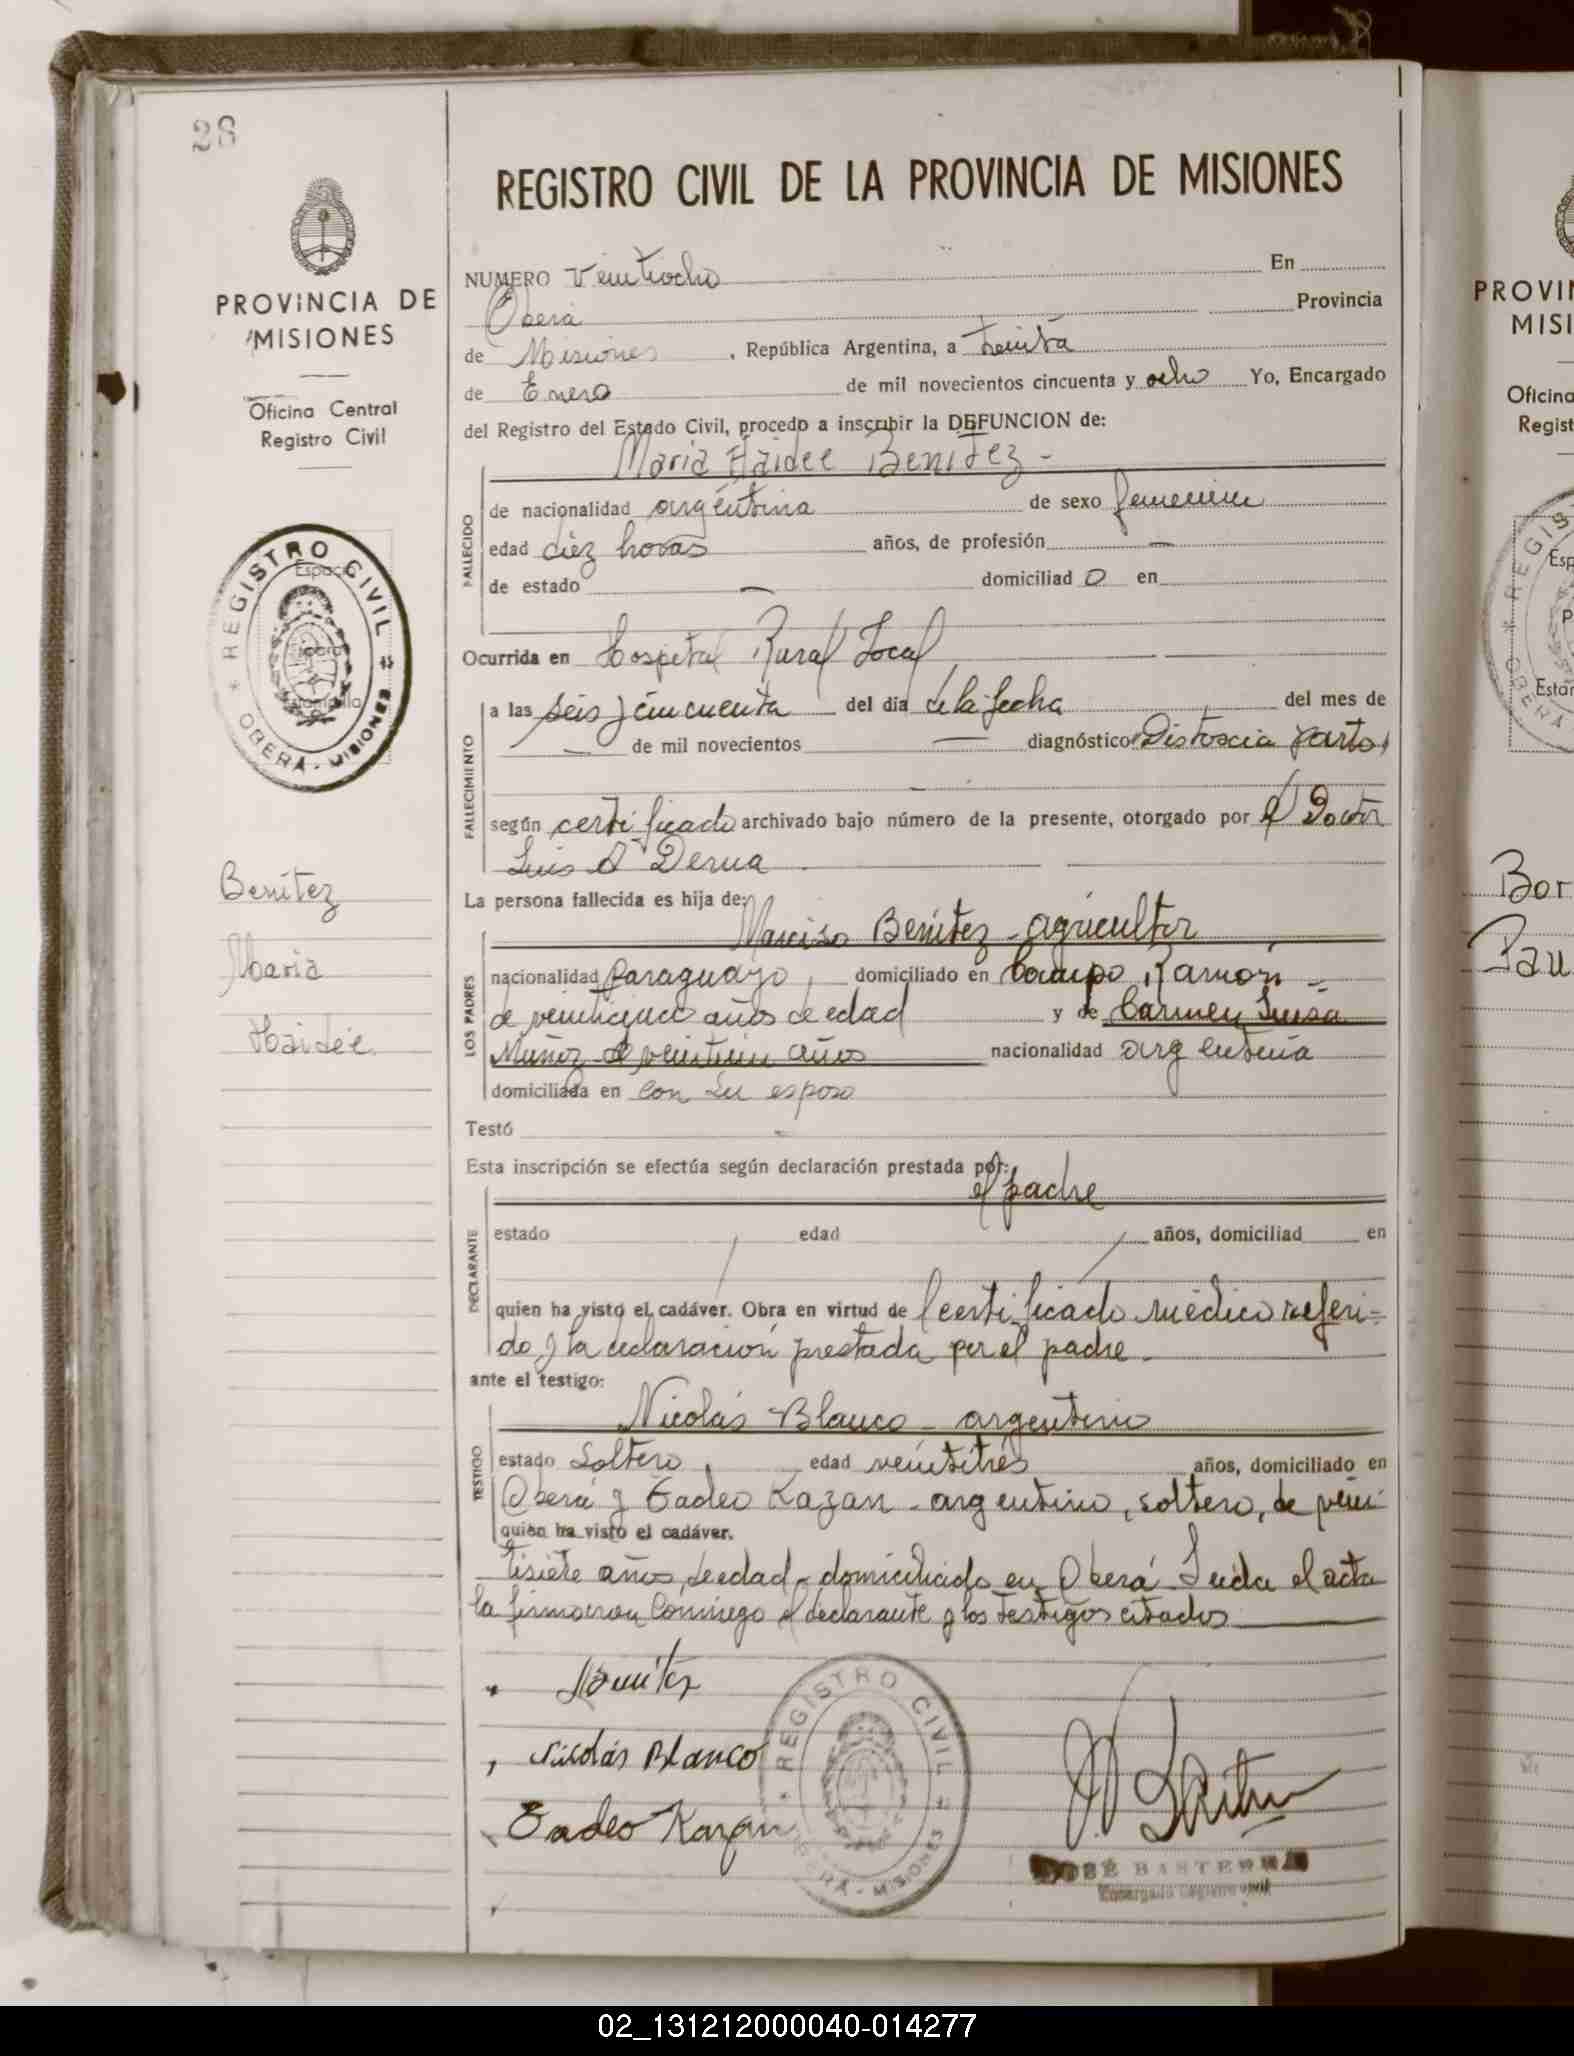 28
REGISTRO CIVIL DE LA PROVINCIA DE MISIONES
PROVINCIA DE
MISIONES
Oficina Central
Registro Civil
NUMERO Veintiocho En
Oberá Provincia
de Misiones, República Argentina, a treinta
de Enero de mil novecientos cincuenta y ocho Yo, Encargado
del Registro del Estado Civil, procedo a inscribir la DEFUNCION de:
Maria Haidee Benitez -
FALLECIDO
de nacionalidad argentina de sexo femenino
edad diez horas años, de profesión —
de estado — domiciliad o en
Ocurrida en Hospital Rural Local
FALLECIMIENTO
a las seis y cincuenta del día de la fecha del mes de
— de mil novecientos — diagnóstico Distocia parto,
según certificado archivado bajo número de la presente, otorgado por el Doctor
Luis A Derna
La persona fallecida es hija de:
Narciso Benítez - agricultor
LOS PADRES
nacionalidad paraguayo, domiciliado en Campo Ramón -
de veinticinco años de edad y de Carmen Luisa
Muñoz de veintiun años nacionalidad argentina
domiciliada en con su esposo
Testó -
Esta inscripción se efectúa según declaración prestada por:
el padre
DECLARANTE
estado edad años, domiciliad en
quien ha visto el cadáver. Obra en virtud de l certificado médico referi=
do y la declaración prestada por el padre -
ante el testigo:
Nicolás Blanco - argentino
TESTIGO
estado soltero, edad veintitrés años, domiciliado en
Oberá y Tadeo Kazan - argentino, soltero, de vein
quien ha visto el cadáver.
tisiete años de edad - domiciliado en Oberá Leida el acta
la firmaron conmigo el declarante y los testigos citados
Benítez
Nicolás Blanco
Tadeo Kazan
JOSÉ BASTERRA
Encargado Registro Civil
REGISTRO CIVIL
OBERÁ - MISIONES
REGISTRO CIVIL
OBERÁ - MISIONES
Espacio
para
Estampilla
Benítez
Maria
Haidée
PROVIN
MISI
Oficina
Regist
Bor
Pau
02_131212000040-014277